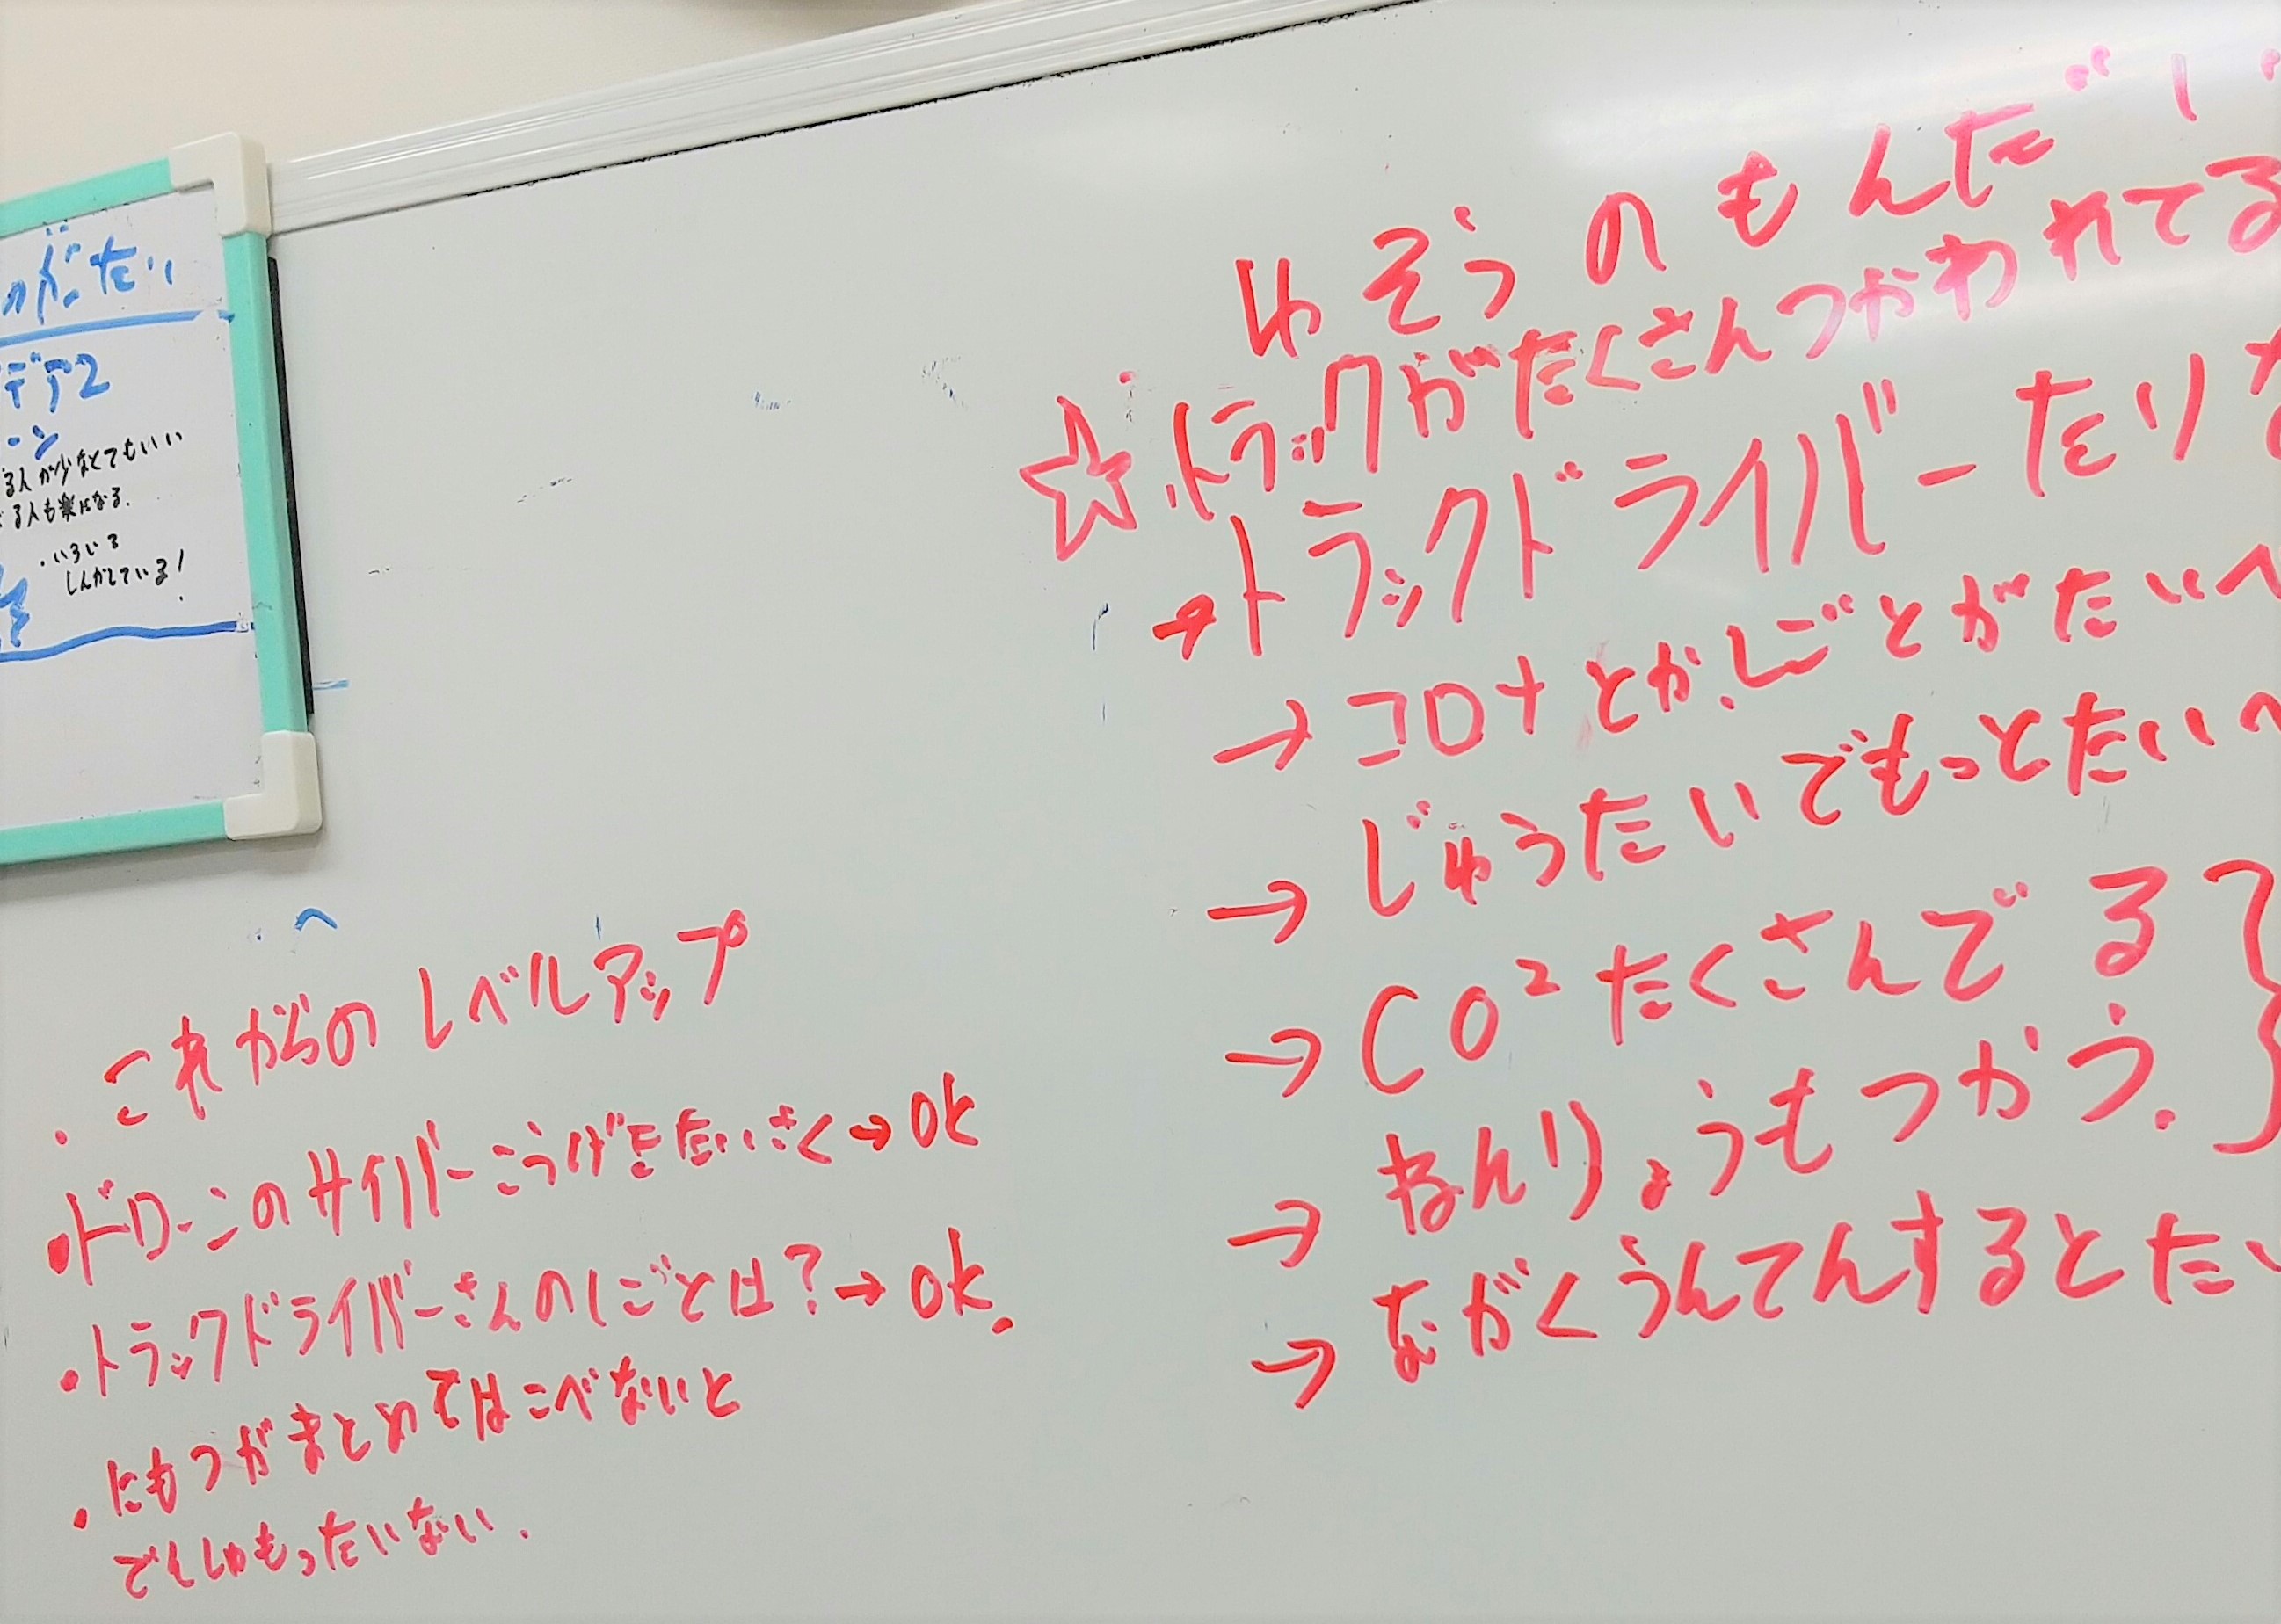 のがったい
デア2
ーン
る人が少なくてもいい
る人も楽になる.
・いろいろ
しんかしている!
これからのレベルアップ
・ドローンのサイバーこうげきたいさく→OK
・トラックドライバーさんのしごとは?→OK.
・にもつがまとめてはこべないと
でんしゃもったいない.
ゆそうのもんだい
☆トラックがたくさんつかわれてる
→トラックドライバーたりな
→コロナとか.しごとがたいへ
→じゅうたいでもっとたいへ
→CO²たくさんでる
→ねんりょうもつかう.
→ながくうんてんするとたい